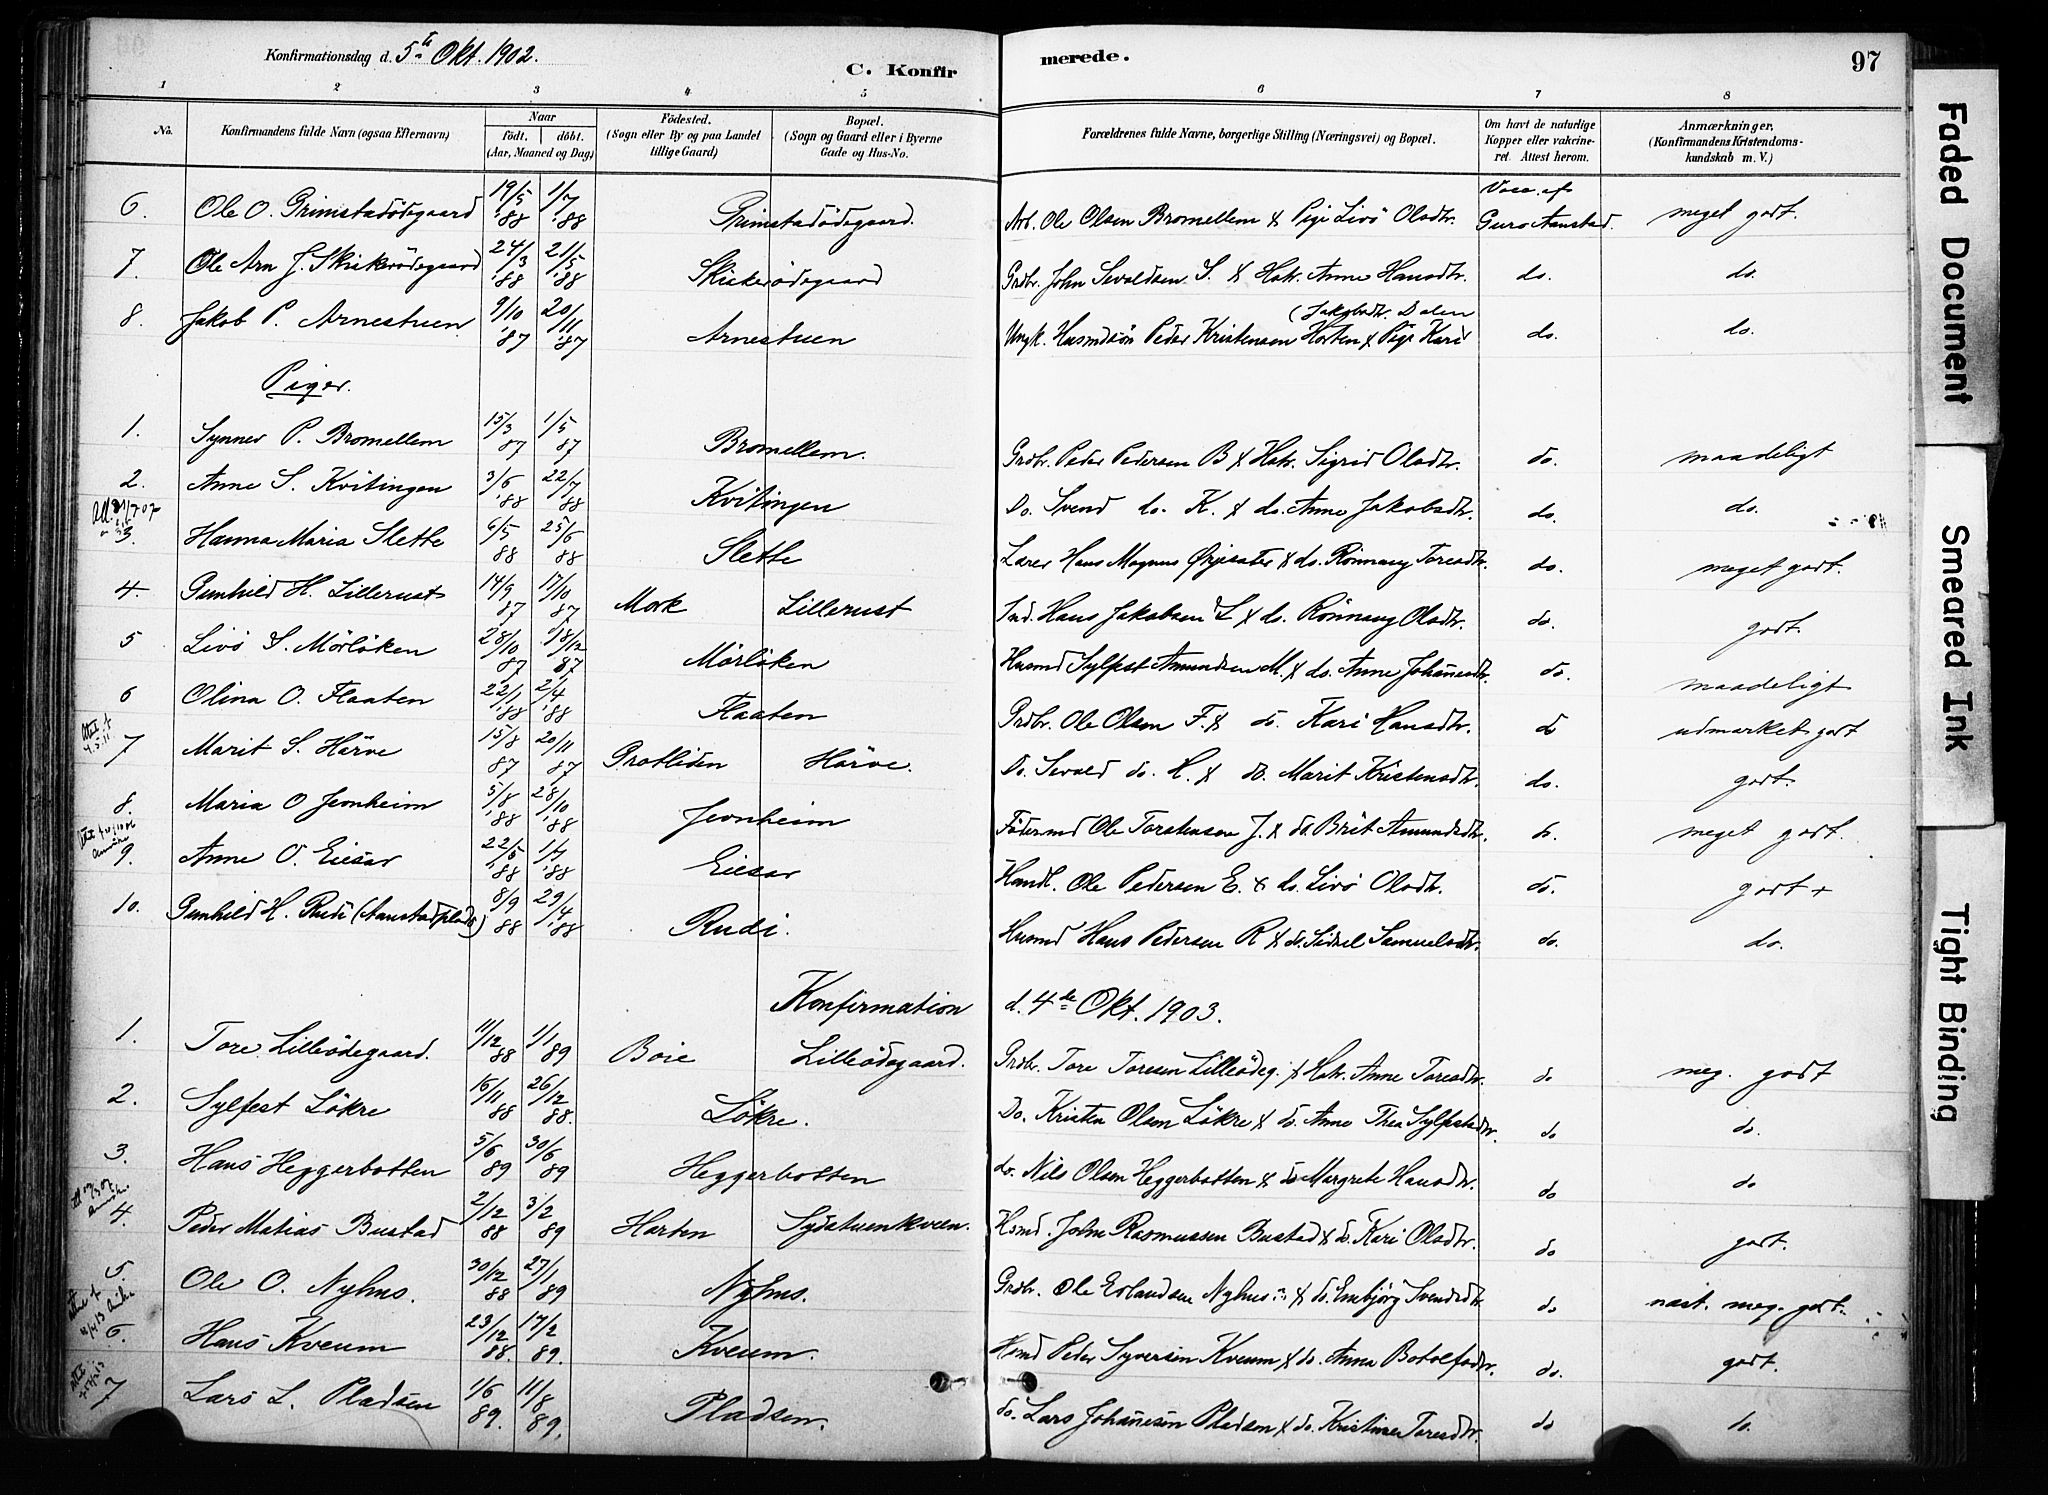 Konfirmationsdag d. 5te Okt. 1902.
C. Konfirmerede.
97
1 2 3 4 5 6 7 8
No.
Konfirmandens fulde Navn (ogsaa Efternavn)
Naar
födt. döbt.
(Aar, Maaned og Dag)
Födested.
(Sogn eller By og paa Landet
tillige Gaard)
Bopæl.
(Sogn og Gaard eller i Byerne
Gade og Hus-No.
Forældrenes fulde Navne, borgerlige Stilling (Næringsvei) og Bopæl.
Om havt de naturlige
Kopper eller vakcine-
ret. Attest herom.
Anmærkninger.
(Konfirmandens Kristendoms-
kundskab m. V.)
6. Ole O. Grimstadödegaard 19/5 '88 1/7 '88 Grimstadödegaard. Arb. Ole Olsen Bromellem & Pige Livö Olsdtr. Vacc. af Guro Aanstad. meget godt.
7. Ole Arn J. Skiakerödegaard 24/3 '88 21/5 '88 Skiakerödegaard Grdbr. John Sevaldsen S. & Hstr. Anne Hansdtr. do. do.
8. Jakob P. Arnestuen 9/10 '87 20/11 '87 Arnestuen Ungk. Husmdsön Peder Kristensen Horten & Pige Kari (Jakobsdtr. Dalen do. do.
Piger.
1. Synnev P. Bromellem 15/3 87 1/5 87 Bromellem. Grdbr. Peder Pedersen B & Hstr. Sigrid Olsdtr. do. maadeligt
2. Anne S. Kvitingen 3/6 '88 22/7 '88 Kvitingen Do. Svend do. K. & do. Anne Jakobsdtr. do. do.
3. Hanna Maria Slette 6/5 88 25/6 88 Slette Lærer Hans Magnus Øyjesater & do. Rönnaug Toresdtr. do. meget godt.
4 Gunhild H. Lillerust 14/9 87 17/10 87 Mork Lillerust Ind. Hans Jakobsen L & do. Rönnaug Olsdtr. do. godt.
5 Livö S. Mörlöken 28/10 87 18/12 87 Mörlöken Husmd Sylfest Amundsen M. & do. Anne Johannesdtr. do. maadeligt
6 Olina O. Flaaten 22/1 '88 2/4 '88 Flaaten Grdbr. Ole Olsen F. & do. Kari Hansdtr. do udmærket godt
7 Marit S. Hörve 15/8 87 20/11 87 Grotliden Hörve. Do. Sevald do. H. & do. Marit Kristensdtr. do. godt.
8. Maria O Jonheim 5/8 '88 28/10 '88 Jonheim Föderaad Ole Torstensen J. & do Brit Amundsdtr. do. meget godt.
9. Anne O. Eiesar 22/5 '88 1/7 '88 Eiesar Handl. Ole Pedersen E. & do. Livö Olsdtr. do. godt +
10. Gunhild H. Rudi (Aanstadplads) 8/9 88 29/4 '88 Rudi. Husmd Hans Pedersen R & do. Sidsel Samuelsdtr. do. do.
Konfirmation d. 4de Okt. 1903.
1. Tore Lilleödegaard. 11/12 88 1/1 89 Böie Lilleödegaard. Grdbr. Tore Toresen Lilleödeg. & Hstr. Anne Toresdtr. do meg. godt
2. Sylfest Lökre 15/11 88 26/12 88. Lökre. Do. Kristen Olsen Lökre & do. Anne Thea Sylfestsdtr. do do.
3. Hans Heggerbotten 5/6 89 30/6 89 Heggerbotten do. Nils Olsen Heggerbotten & do Margrete Hansdtr. do do
4. Peder Matias Bustad 2/12 88 3/2 89 Horten Sydstuenkveen. Hsmd. John Rasmussen Bustad & do. Kari Olsdtr. do godt.
5. Ole O. Nyhus. 30/12 88 27/1 89 Nyhus. Grdbr. Ole Erlandsen Nyhus & do. Embjörg Svendsdtr. do næst. meg. godt.
6. Hans Kveum 23/12 88. 17/2 89. Kveum. Hsmd Peder Syversen Kveum & do. Anna Botolfsdtr. do. godt.
7 Lars L. Pladsen 1/6 89. 11/8 89. Pladsen. do. Lars Johannesen Pladsen & do. Kristine Toresdtr. do do.
Faded Document
Smeared Ink
Tight Binding